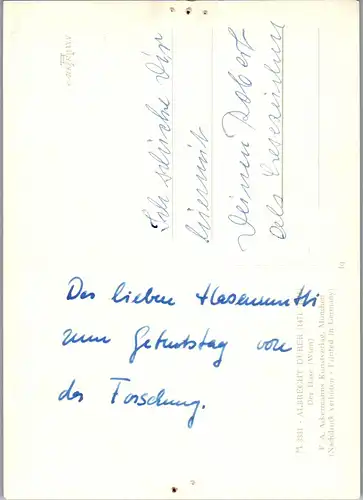 Der lieben Hasenmutti
zum Geburtstag von
der Forschung.
Ich schicke Dir
hiermit
Deinen Robert
als Lesezeichen
M 2331 - ALBRECHT DÜRER (1471
Der Hase (Wien)
F. A. Ackermanns Kunstverlag, München
(Nachdruck verboten - Printed in Germany)